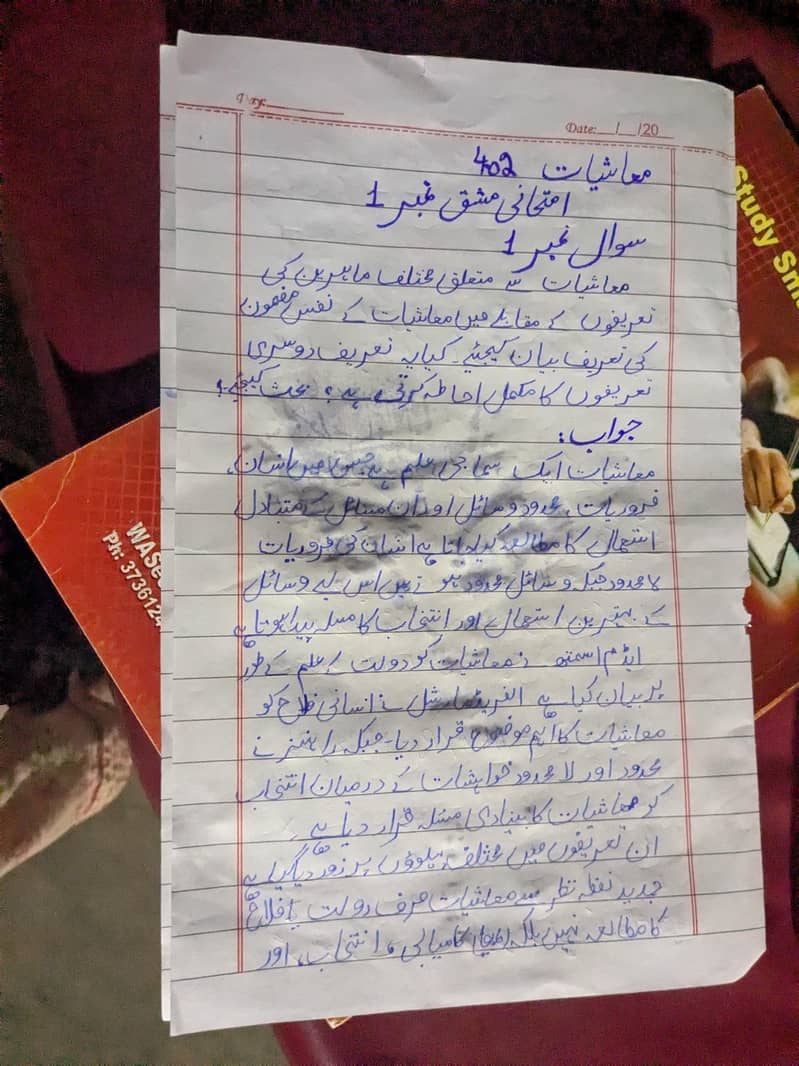 Date: __/__/20
معاشیات 402
امتحانی مشق نمبر 1
سوال نمبر 1
معاشیات سے متعلق مختلف ماہرین کی
تعریفوں کے مقابلے میں معاشیات کے نفس مضمون
کی تعریف بیان کیجئے۔ کیا یہ تعریف دوسری
تعریفوں کا مکمل احاطہ کرتی ہے؟ بحث کیجئے؟
جواب:
معاشیات ایک سماجی علم ہے جس میں انسان
ضروریات، محدود وسائل اور ان مسائل کے متبادل
استعمال کا مطالعہ کیا جاتا ہے انسان کی ضروریات
لا محدود جبکہ وسائل محدود ہوتے ہیں اس لیے وسائل
کے بہترین استعمال اور انتخاب کا مسلہ پیدا ہوتا ہے
ایڈم اسمتھ نے معاشیات کو دولت کے علم کے طور
پر بیان کیا ہے الفریڈ مارشل نے انسانی فلاح کو
معاشیات کا اہم موضوع قرار دیا۔ جبکہ رابنز نے
محدود اور لا محدود خواہشات کے درمیان انتخاب
کو معاشیات کا بنیادی مسئلہ قرار دیا ہے
ان تعریفوں میں مختلف پہلوؤں پر زور دیا گیا ہے
جدید نقطہ نظر سے معاشیات صرف دولت یا فلاح
کا مطالعہ نہیں بلکہ کامیابی، انتخاب، اور
Study
WASE
Ph: 3736124